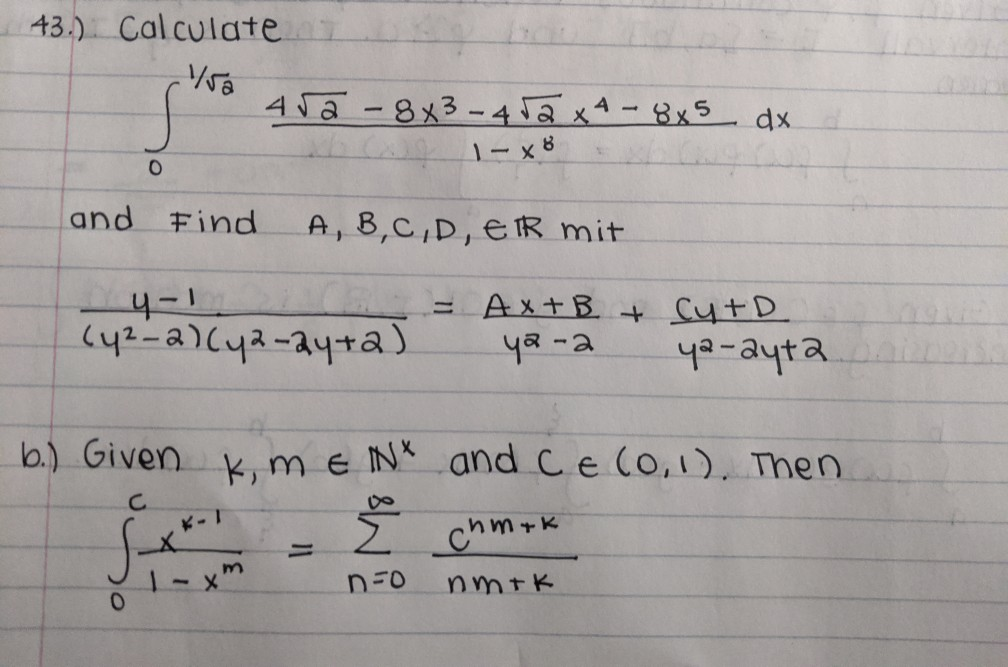 43.) Calculate
∫₀^{1/√2} (4√2 - 8x³ - 4√2 x⁴ - 8x⁵)/(1 - x⁸) dx
and Find A, B, C, D, ∈ ℝ mit
(y-1)/((y²-2)(y²-2y+2)) = (Ax+B)/(y²-2) + (Cy+D)/(y²-2y+2)
b.) Given k, m ∈ ℕˣ and C ∈ (0,1). Then
∫₀^c x^{k-1}/(1-x^m) = Σ_{n=0}^∞ c^{nm+k}/(nm+k)